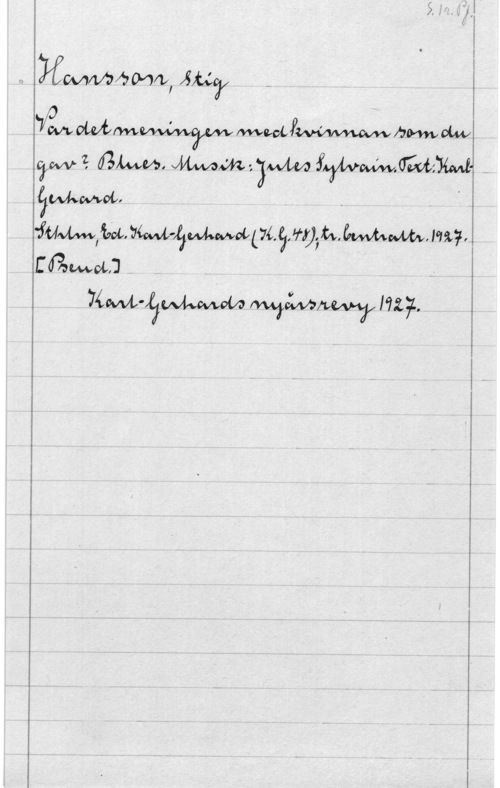 S. 1 a. Pf.
Hansson, Stig
Var det meningen med kvinnan som du
gav? Blues. Musik: Jules Sylvain. Text: Karl-
Gerhard.
Sthlm, Ed. Karl-Gerhard (K.G. 48); tr. Centraltr. 1927.
[Pseud.]
Karl-Gerhards nyårsrevy 1927.